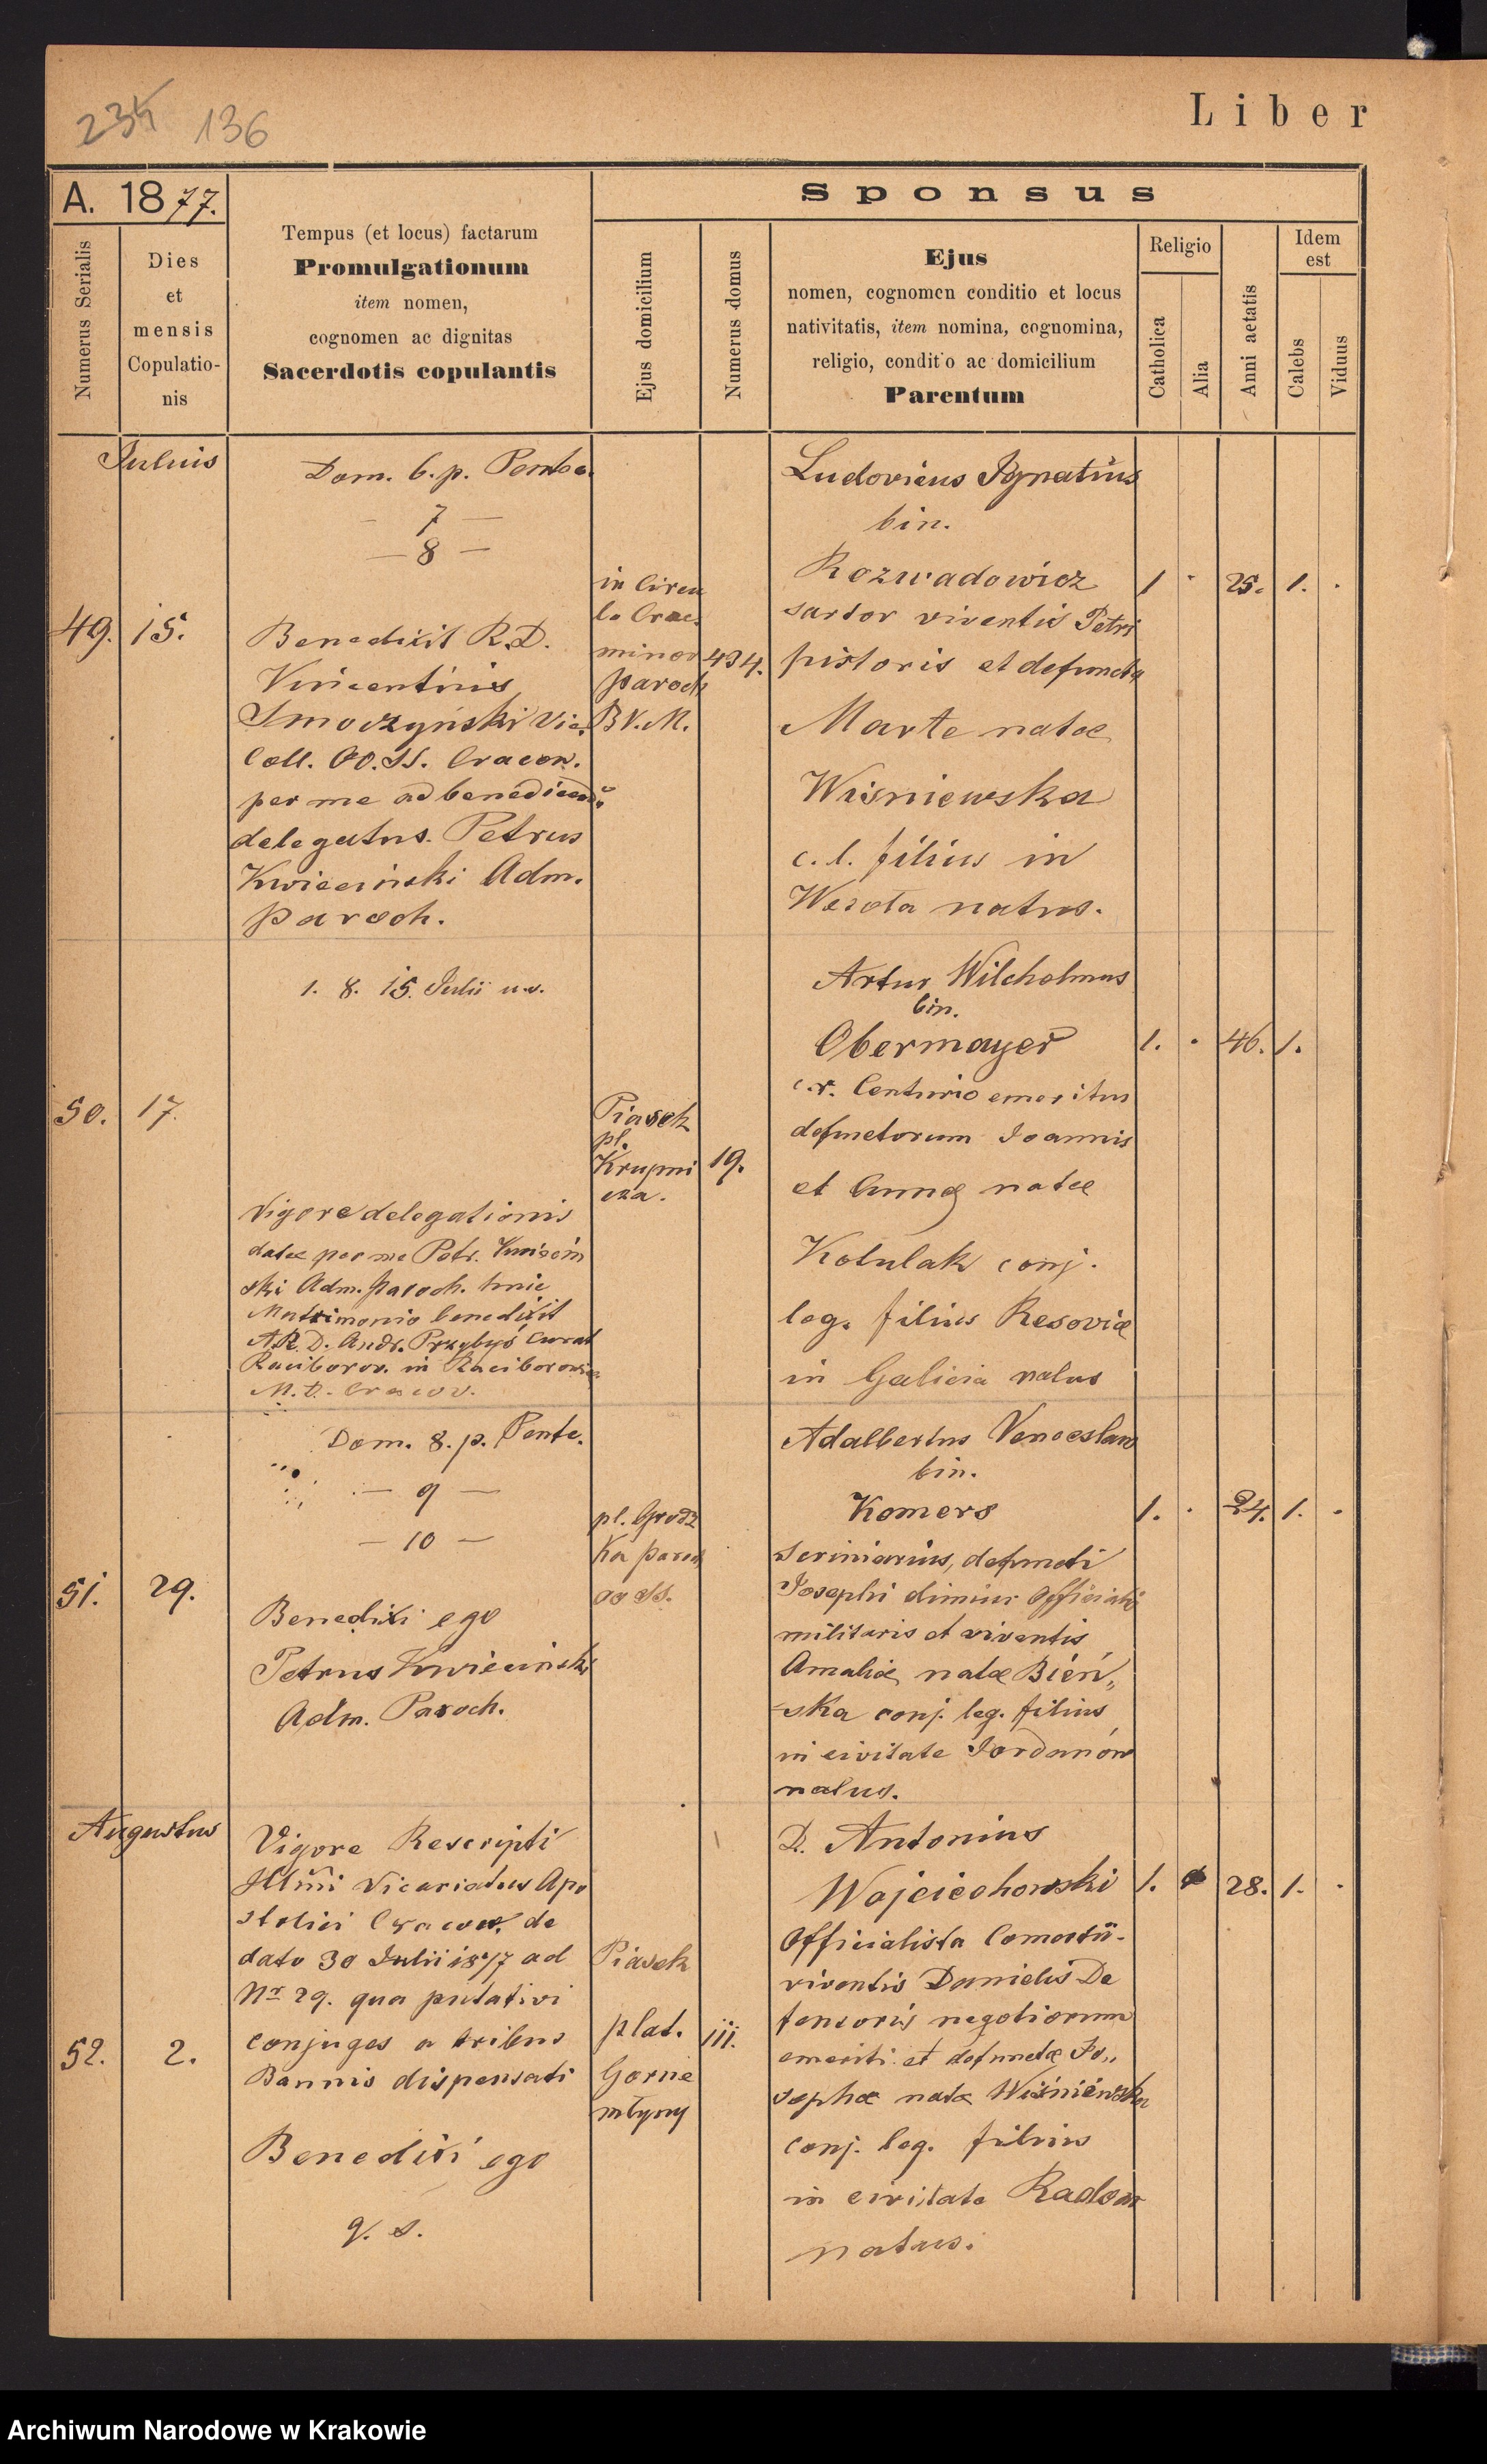 235 136
Liber
A. 1877.
Sponsus
Numerus Serialis
Dies
et
mensis
Copulatio-
nis
Tempus (et locus) factarum
Promulgationum
item nomen,
cognomen ac dignitas
Sacerdotis copulantis
Ejus domicilium
Numerus domus
Ejus
nomen, cognomen conditio et locus
nativitatis, item nomina, cognomina,
religio, conditio ac domicilium
Parentum
Religio
Catholica
Alia
Anni aetatis
Idem
est
Calebs
Viduus
Julius
49. 15.
Dom. 6. p. Pente.
— 7 —
— 8 —
Benedixit R.D.
Vincentius
Smoczyński Vic.
Coll. OO. SS. Cracov.
per me ad benedicendū
delegatus. Petrus
Kwieciński Adm.
paroch.
in Circu
lo Crac.
minor
paroch
B.V.M.
434.
Ludovicus Ignatius
bin.
Rozwadowicz
sartor viventis Petri
pistoris et defuncta
Marte natae
Wiśniewska
c. l. filius in
Wesoła natus.
1 · 25. 1. ·
50. 17.
1. 8. 15. Julii u.s.
Vigore delegationis
datae per me Petr. Kwieciń
ski Adm. paroch. huic
Matrimonio benedixit
A.R.D. Andr. Przybyś Curat
Raciborov. in Raciborowice
M.D. Cracov.
Piasek
pl.
Krupni
cza.
19.
Artur Wilcholmus
bin.
Obermayer
c.r. Centurio emeritus
defunctorum Joannis
et Annae natae
Kotulak conj.
leg. filius Resoviae
in Galicia natus
1. · 46. 1.
51. 29.
Dom. 8. p. Pente.
— 9 —
— 10 —
Benedixi ego
Petrus Kwieciński
Adm. Paroch.
pl. Grodz
ka paroch
OO SS.
Adalbertus Venceslaus
bin.
Komers
Scriniarius, defuncti
Josephi olim Officialis
militaris et viventis
Amaliae natae Bień„
=ska conj. leg. filius
in civitate Jordanów
natus.
1. · 24. 1. ·
Augustus
52. 2.
Vigore Rescripti
Illmi Vicariatus Apo
stolici Cracov. de
dato 30 Julii 1877 ad
Nr 29. qua putativi
conjuges a tribus
Bannis dispensati
Benedixi ego
q. s.
Piasek
plat.
Gorne
młyny
111.
D. Antonius
Wojciechowski
Officialista
viventis Danielis De
fensoris negotiorum
emeriti et defunctae Jo„
sephae natae Wiśniewska
conj. leg. filius
in civitate Radom
natus.
1. 28. 1. ·
Archiwum Narodowe w Krakowie